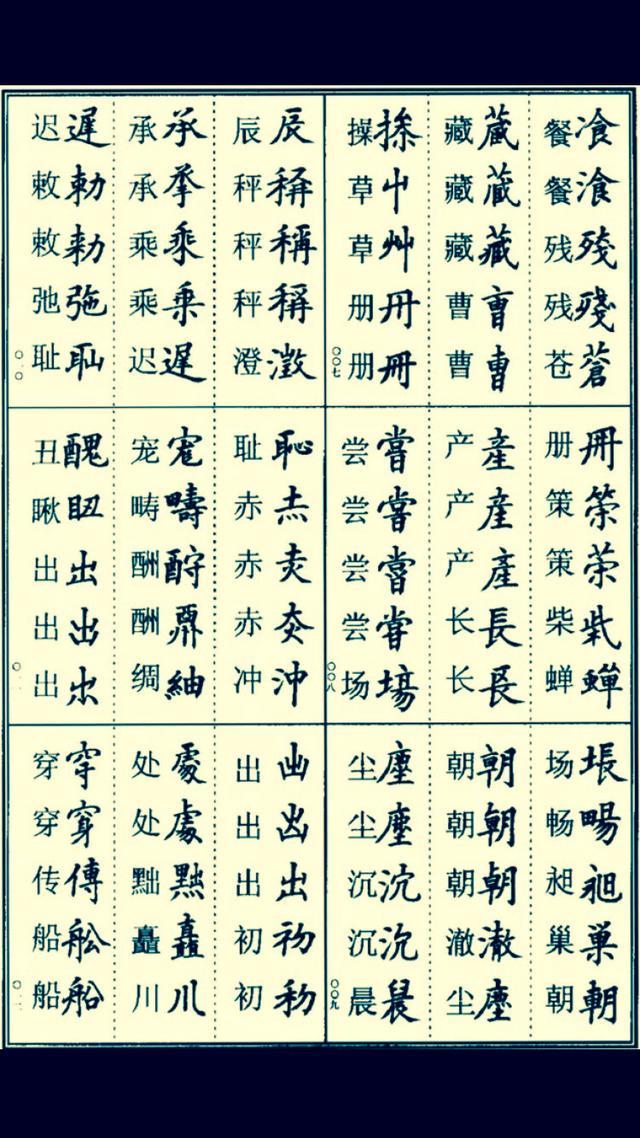 餐飡 餐湌 残殘 残殘 苍蒼
藏蔵 藏蔵 藏藏 曹曺 曹曺
操 草屮 草艸 册冊 册冊
〇〇七
册冊 策筞 策 柴 蝉蟬
产產 产產 产產 长長 长镸
尝嘗 尝嘗 尝嘗 尝甞 场塲
〇〇八
场 畅暢 昶昶 巢巣 朝朝
朝朝 朝朝 朝朝 澈澈 尘塵
尘塵 尘塵 沉沉 沉沉 晨
〇〇九
辰辰 秤稱 秤稱 秤稱 澄澂
承承 承 乘乗 乘乗 迟遲
迟遲 敕勅 敕勑 弛 耻耻
〇一〇
耻恥 赤 赤 赤 冲沖
宠 畴疇 酬酧 酬 绸紬
丑醜 瞅 出出 出出 出
〇一一
出 出 出出 初初 初
处處 处處 黜 矗矗 川川
穿穿 穿穿 传傳 船舩 船船
〇一二